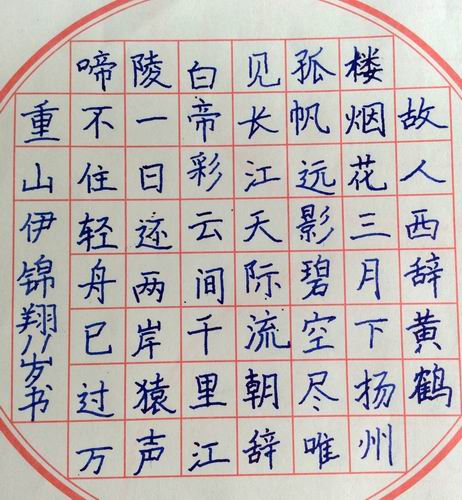 故人西辞黄鹤
楼烟花三月下扬州
孤帆远影碧空尽唯
见长江天际流朝辞
白帝彩云间千里江
陵一日还两岸猿声
啼不住轻舟已过万
重山伊锦翔八岁书